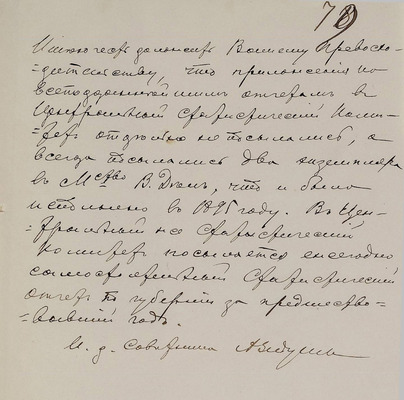 Имею честь доложить Вашему Превосхо-
=дительству, что приложения ко
всеподданнейшим отчетам в
Центральный Статистический Коми-
=тет отдельно не посылались, а
всегда посылались два экземпляра
в М-ство В. Делъ, что и было
исполнено в 1895 году. В Цен-
=тральный же Статистический
Комитетъ посылается ежегодно
самостоятельный Статистический
отчет по губернии за предшество-
=вавший годъ.
И. д. Советника